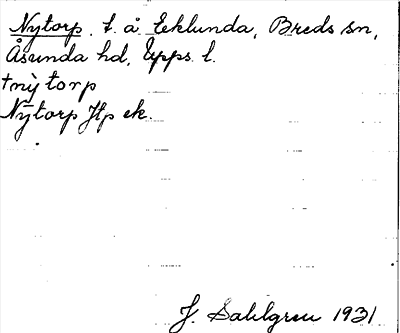 Nytorp. t. å. Eklunda, Breds sn,
Åsunda hd, Upps. l.
+ny̆ torp
Nytorp Jtp ek.
J. Sahlgren 1931